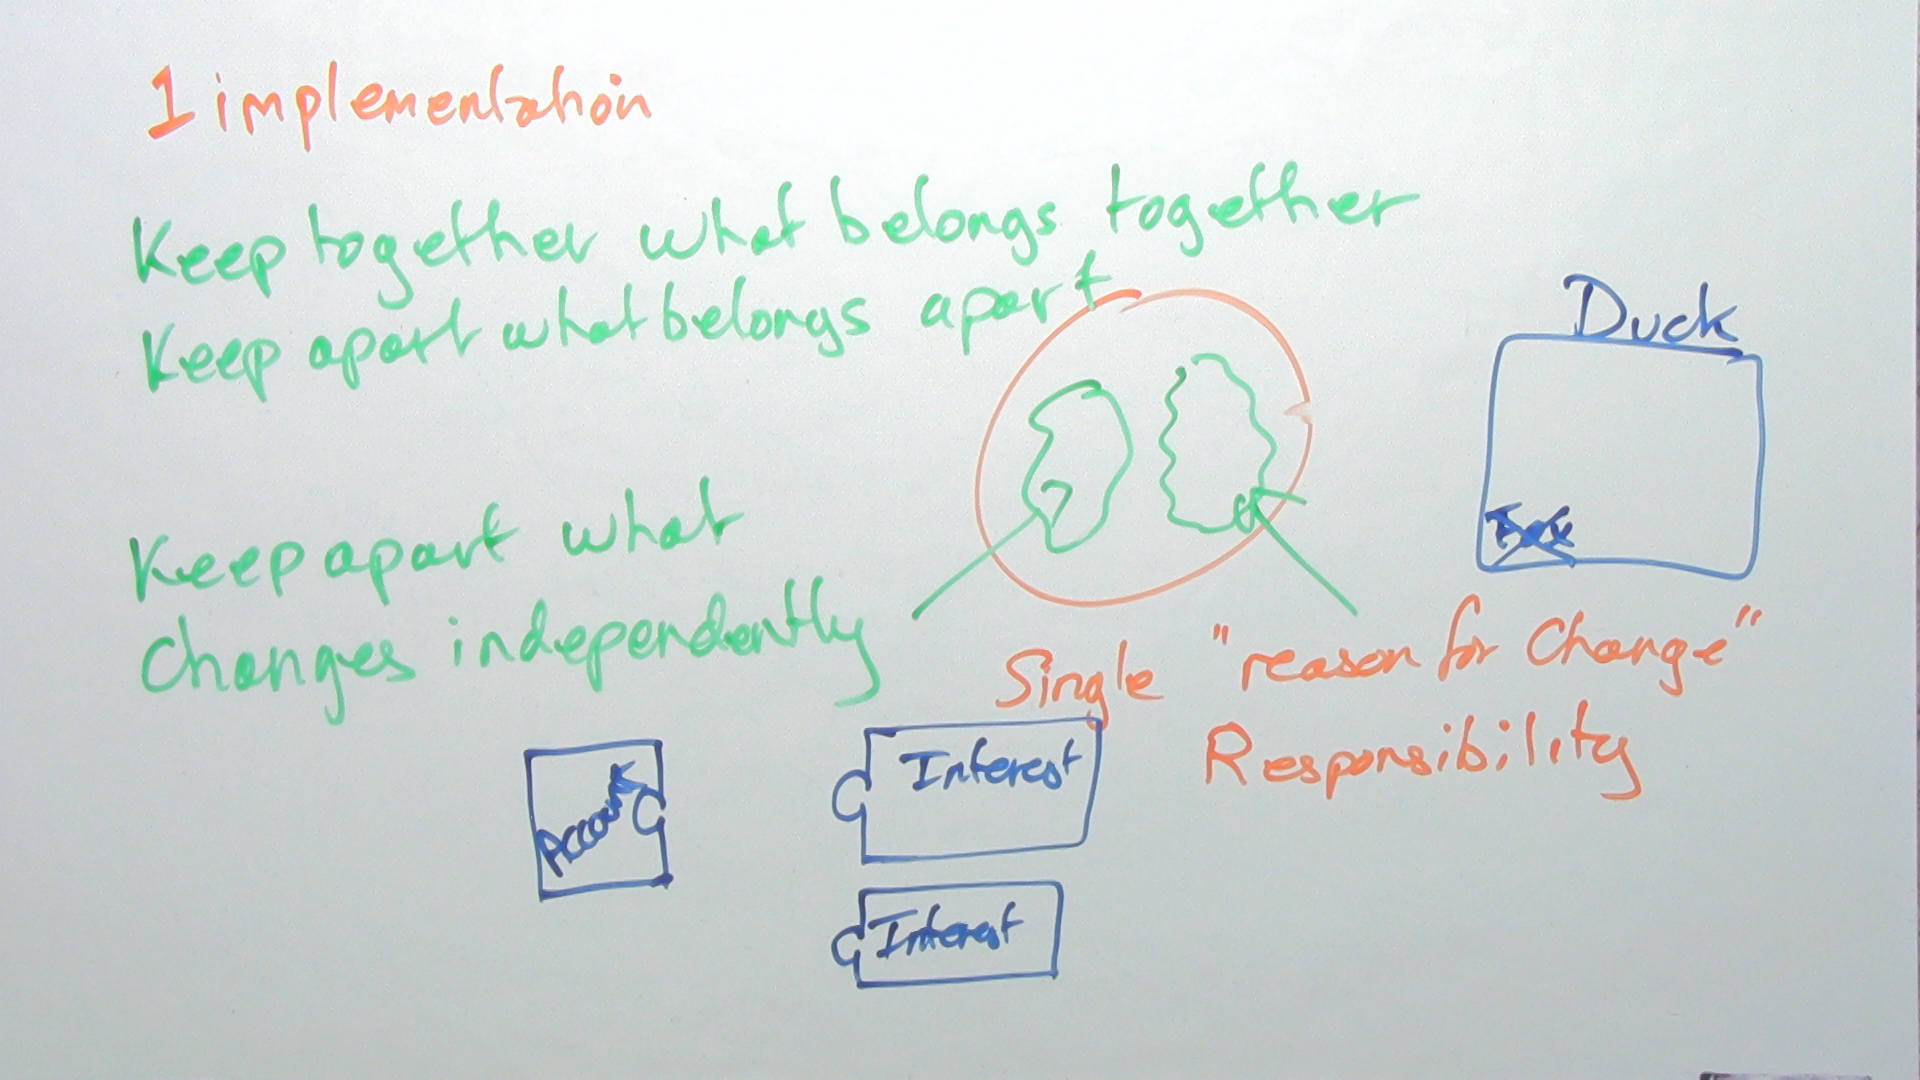 1 implementation
Keep together what belongs together
Keep apart what belongs apart
Duck
Keep apart what
changes independently
Single "reason for Change"
Responsibility
Account
Interest
Interest